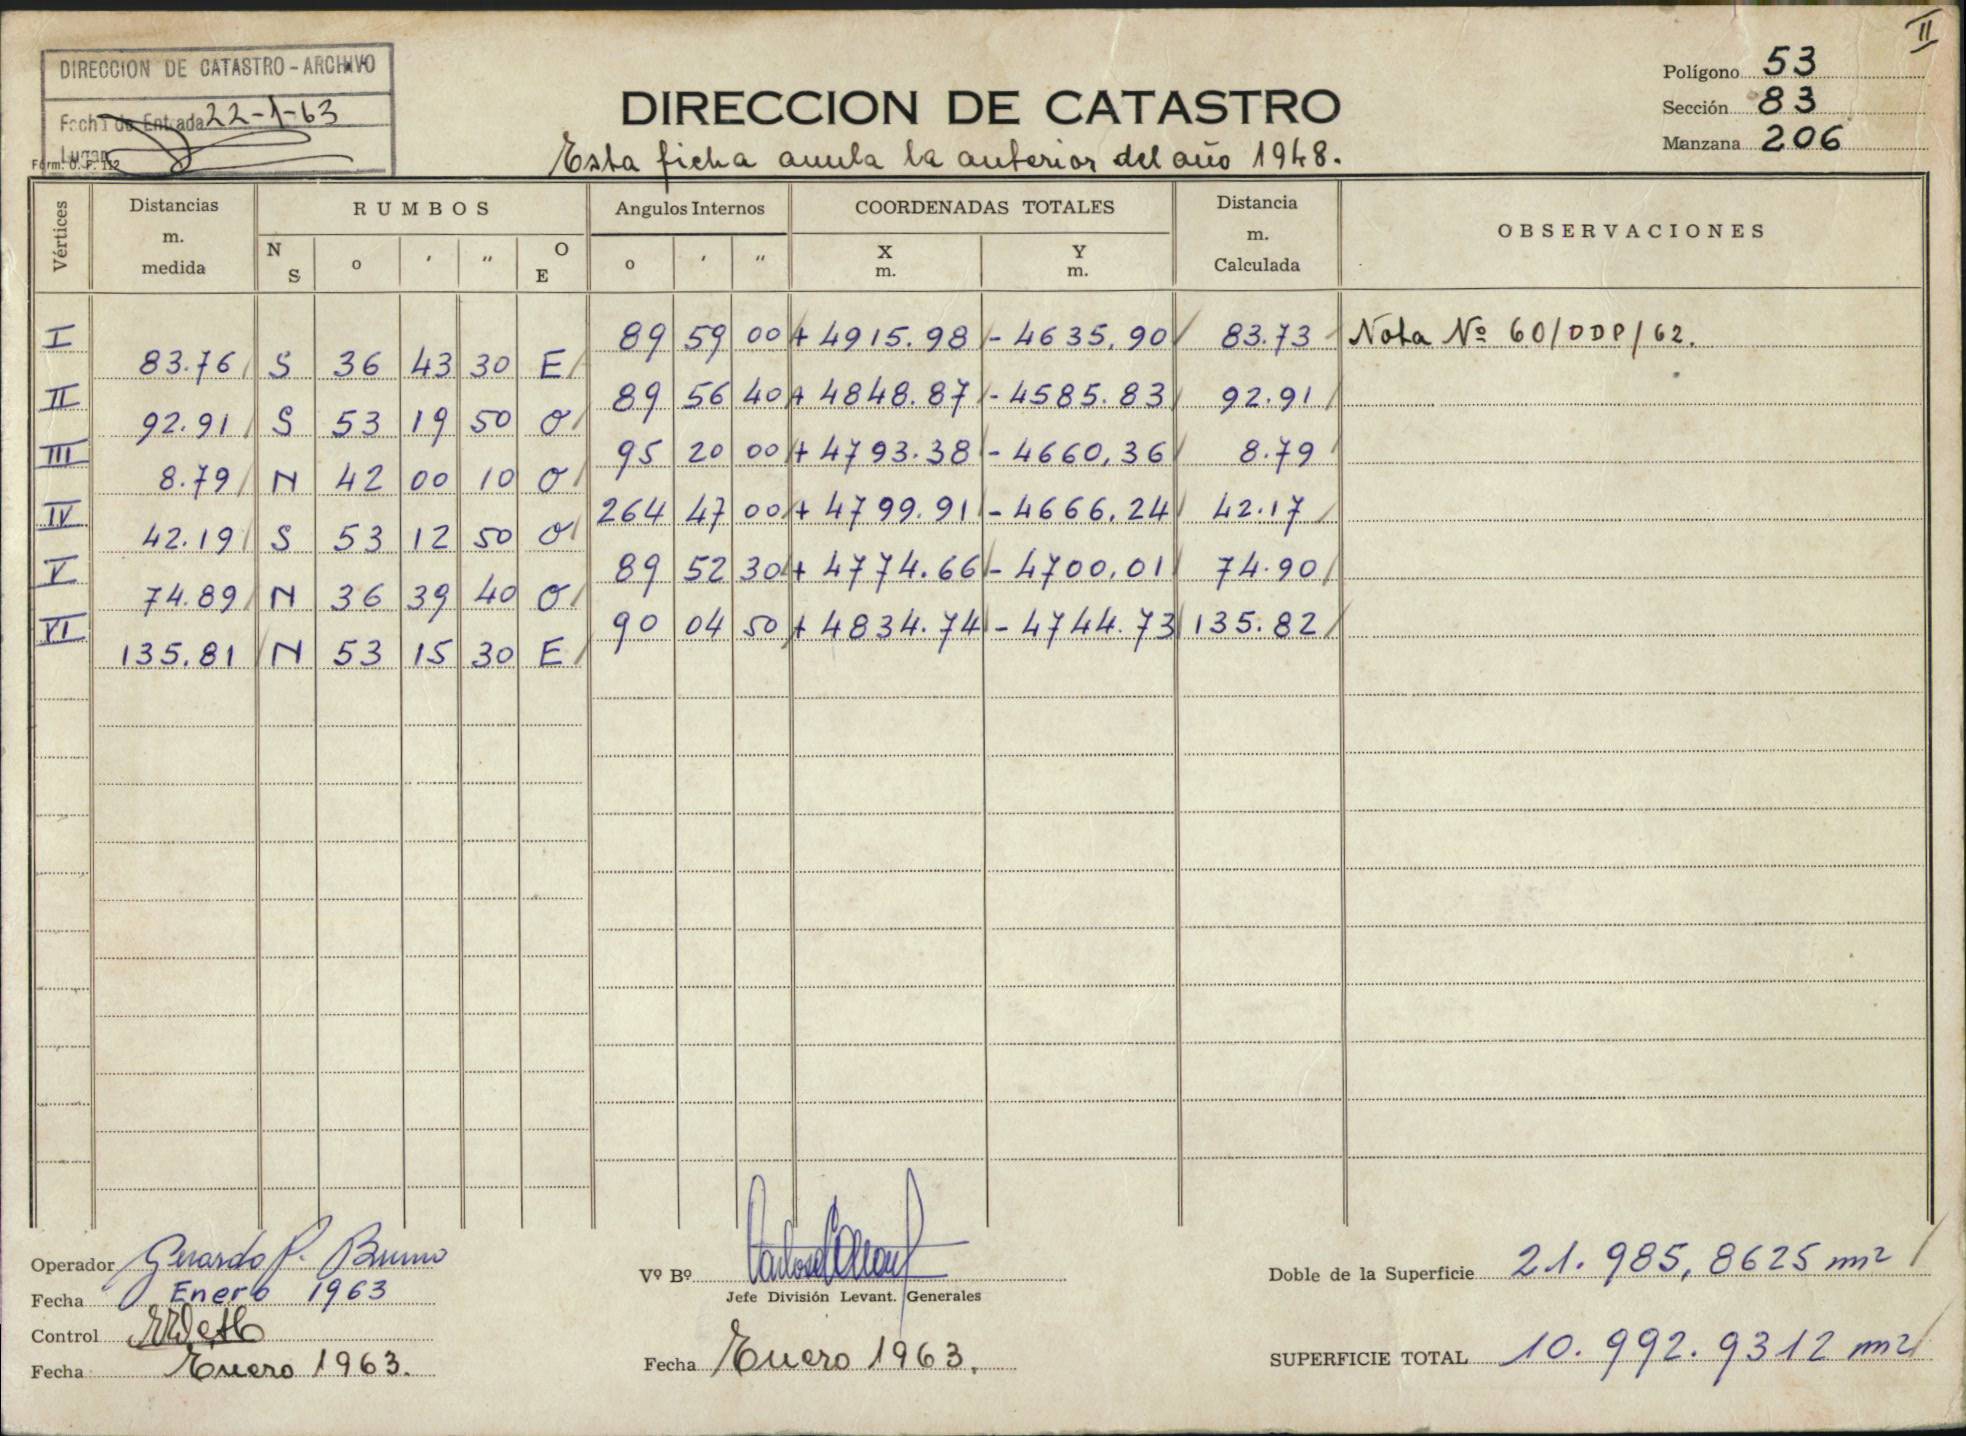 II
DIRECCION DE CATASTRO - ARCHIVO
Fecha de Entrada 22-1-63
Lugar
Form. O. P. 112
DIRECCION DE CATASTRO
Esta ficha anula la anterior del año 1948.
Polígono 53
Sección 83
Manzana 206
Vértices Distancias m. medida RUMBOS N S o ' " O E Angulos Internos o ' " COORDENADAS TOTALES X m. Y m. Distancia m. Calculada OBSERVACIONES
I 89 59 00 + 4915.98 - 4635,90 83.73 Nota Nº 60/DDP/62.
83.76 S 36 43 30 E
II 89 56 40 + 4848.87 - 4585.83 92.91
92.91 S 53 19 50 O
III 95 20 00 + 4793.38 - 4660,36 8.79
8.79 N 42 00 10 O
IV 264 47 00 + 4799.91 - 4666,24 42.17
42.19 S 53 12 50 O
V 89 52 30 + 4774.66 - 4700,01 74.90
74.89 N 36 39 40 O
VI 90 04 50 + 4834.74 - 4744.73 135.82
135.81 N 53 15 30 E
Operador Gerardo P. Bruno
Fecha Enero 1963
Control
Fecha Enero 1963.
Vº Bº
Jefe División Levant. Generales
Fecha Enero 1963.
Doble de la Superficie 21.985,8625 m2
SUPERFICIE TOTAL 10.992.9312 m2